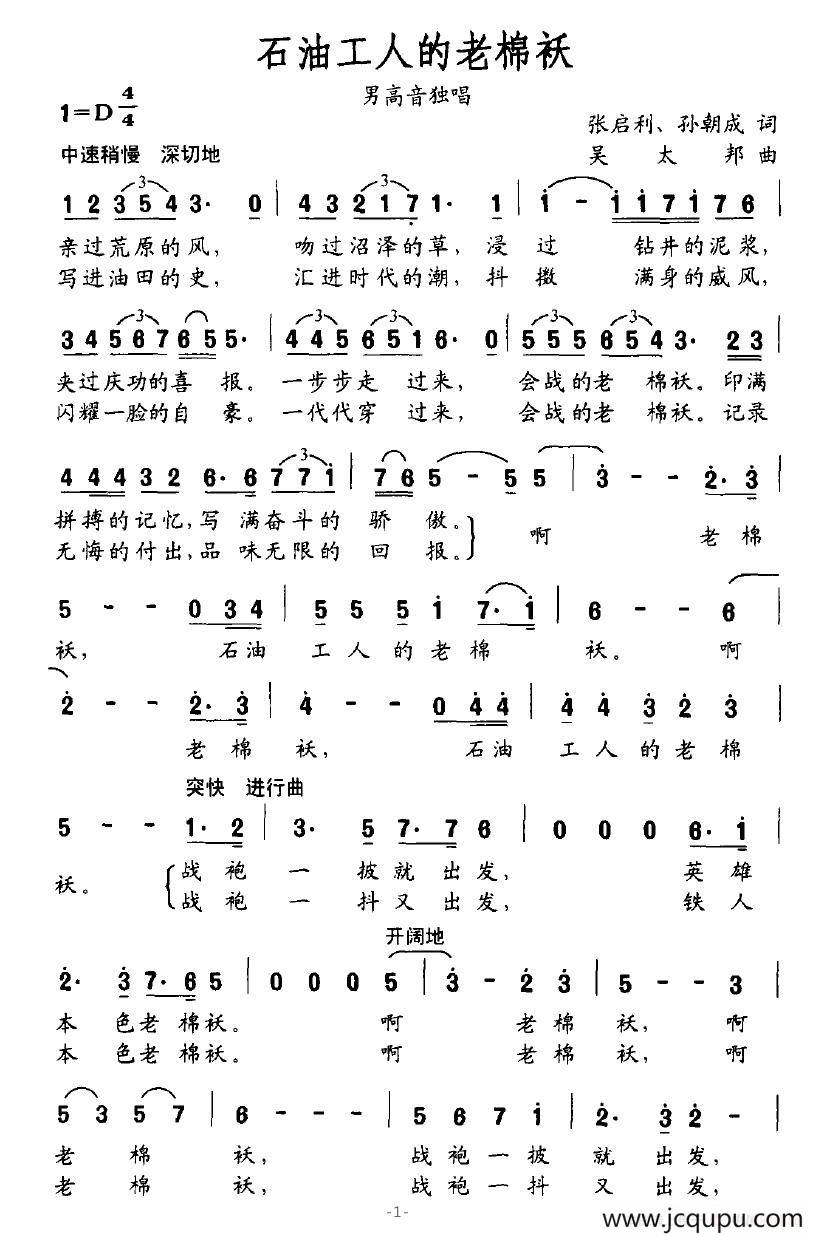 石油工人的老棉袄
男高音独唱
1=D 4/4
张启利、孙朝成 词
中速稍慢 深切地
吴太邦 曲
1 2 3 5 4 3· 0 | 4 3 2 1 7 1· 1 | 1 - 1 1 7 1 7 6 |
亲过荒原的风, 吻过沼泽的草, 浸过 钻井的泥浆,
写进油田的史, 汇进时代的潮, 抖擞 满身的威风,
3 4 5 6 7 6 5 5· | 4 4 5 6 5 1 6· 0 | 5 5 5 6 5 4 3· 2 3 |
夹过庆功的喜 报。 一步步走 过来, 会战的老 棉袄。印满
闪耀一脸的自 豪。 一代代穿 过来, 会战的老 棉袄。记录
4 4 4 3 2 6· 6 7 7 1 | 7 6 5 - 5 5 | 3 - - 2· 3 |
拼搏的记忆, 写 满奋斗的 骄 傲。 啊 老 棉
无悔的付出, 品 味无限的 回 报。
5 - - 0 3 4 | 5 5 5 1 7· 1 | 6 - - 6 |
袄, 石油 工人的老棉 袄。 啊
2 - - 2· 3 | 4 - - 0 4 4 | 4 4 3 2 3 |
老棉 袄, 石油 工人的老棉
突快 进行曲
5 - - 1· 2 | 3· 5 7· 7 6 | 0 0 0 6· 1 |
袄。 战袍 一 披就 出发, 英雄
战袍 一 抖又 出发, 铁人
开阔地
2· 3 7· 6 5 | 0 0 0 5 | 3 - 2 3 | 5 - - 3 |
本 色老 棉袄。 啊 老棉 袄, 啊
本 色老 棉袄。 啊 老棉 袄, 啊
5 3 5 7 | 6 - - - | 5 6 7 1 | 2· 3 2 - |
老 棉 袄, 战袍一披 就 出发,
老 棉 袄, 战袍一抖 又 出发,
-1-
www.jcqupu.com